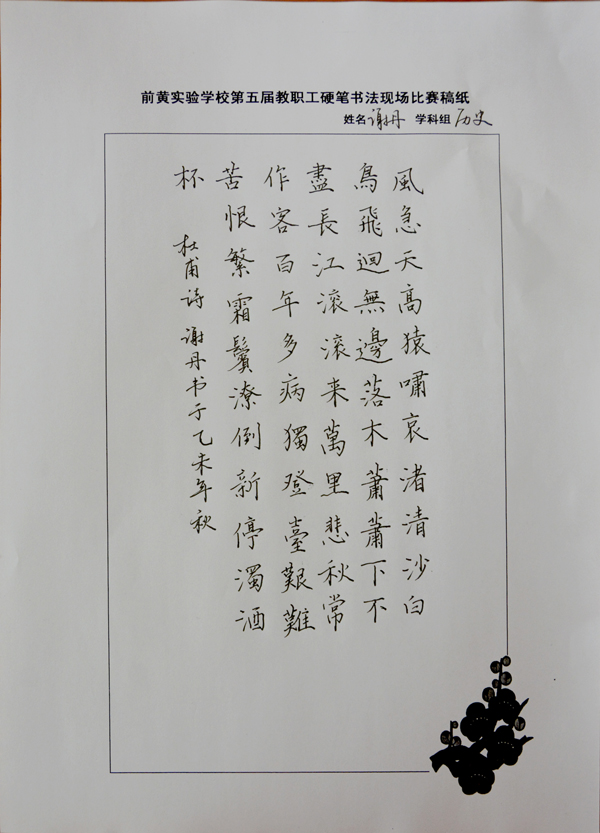 前黄实验学校第五届教职工硬笔书法现场比赛稿纸
姓名 谢丹 学科组 历史
風急天高猿嘯哀渚清沙白
鳥飛迴無邊落木蕭蕭下不
盡長江滚滚来萬里悲秋常
作客百年多病獨登臺艱難
苦恨繁霜鬢潦倒新停濁酒
杯
杜甫诗 谢丹书于乙未年秋